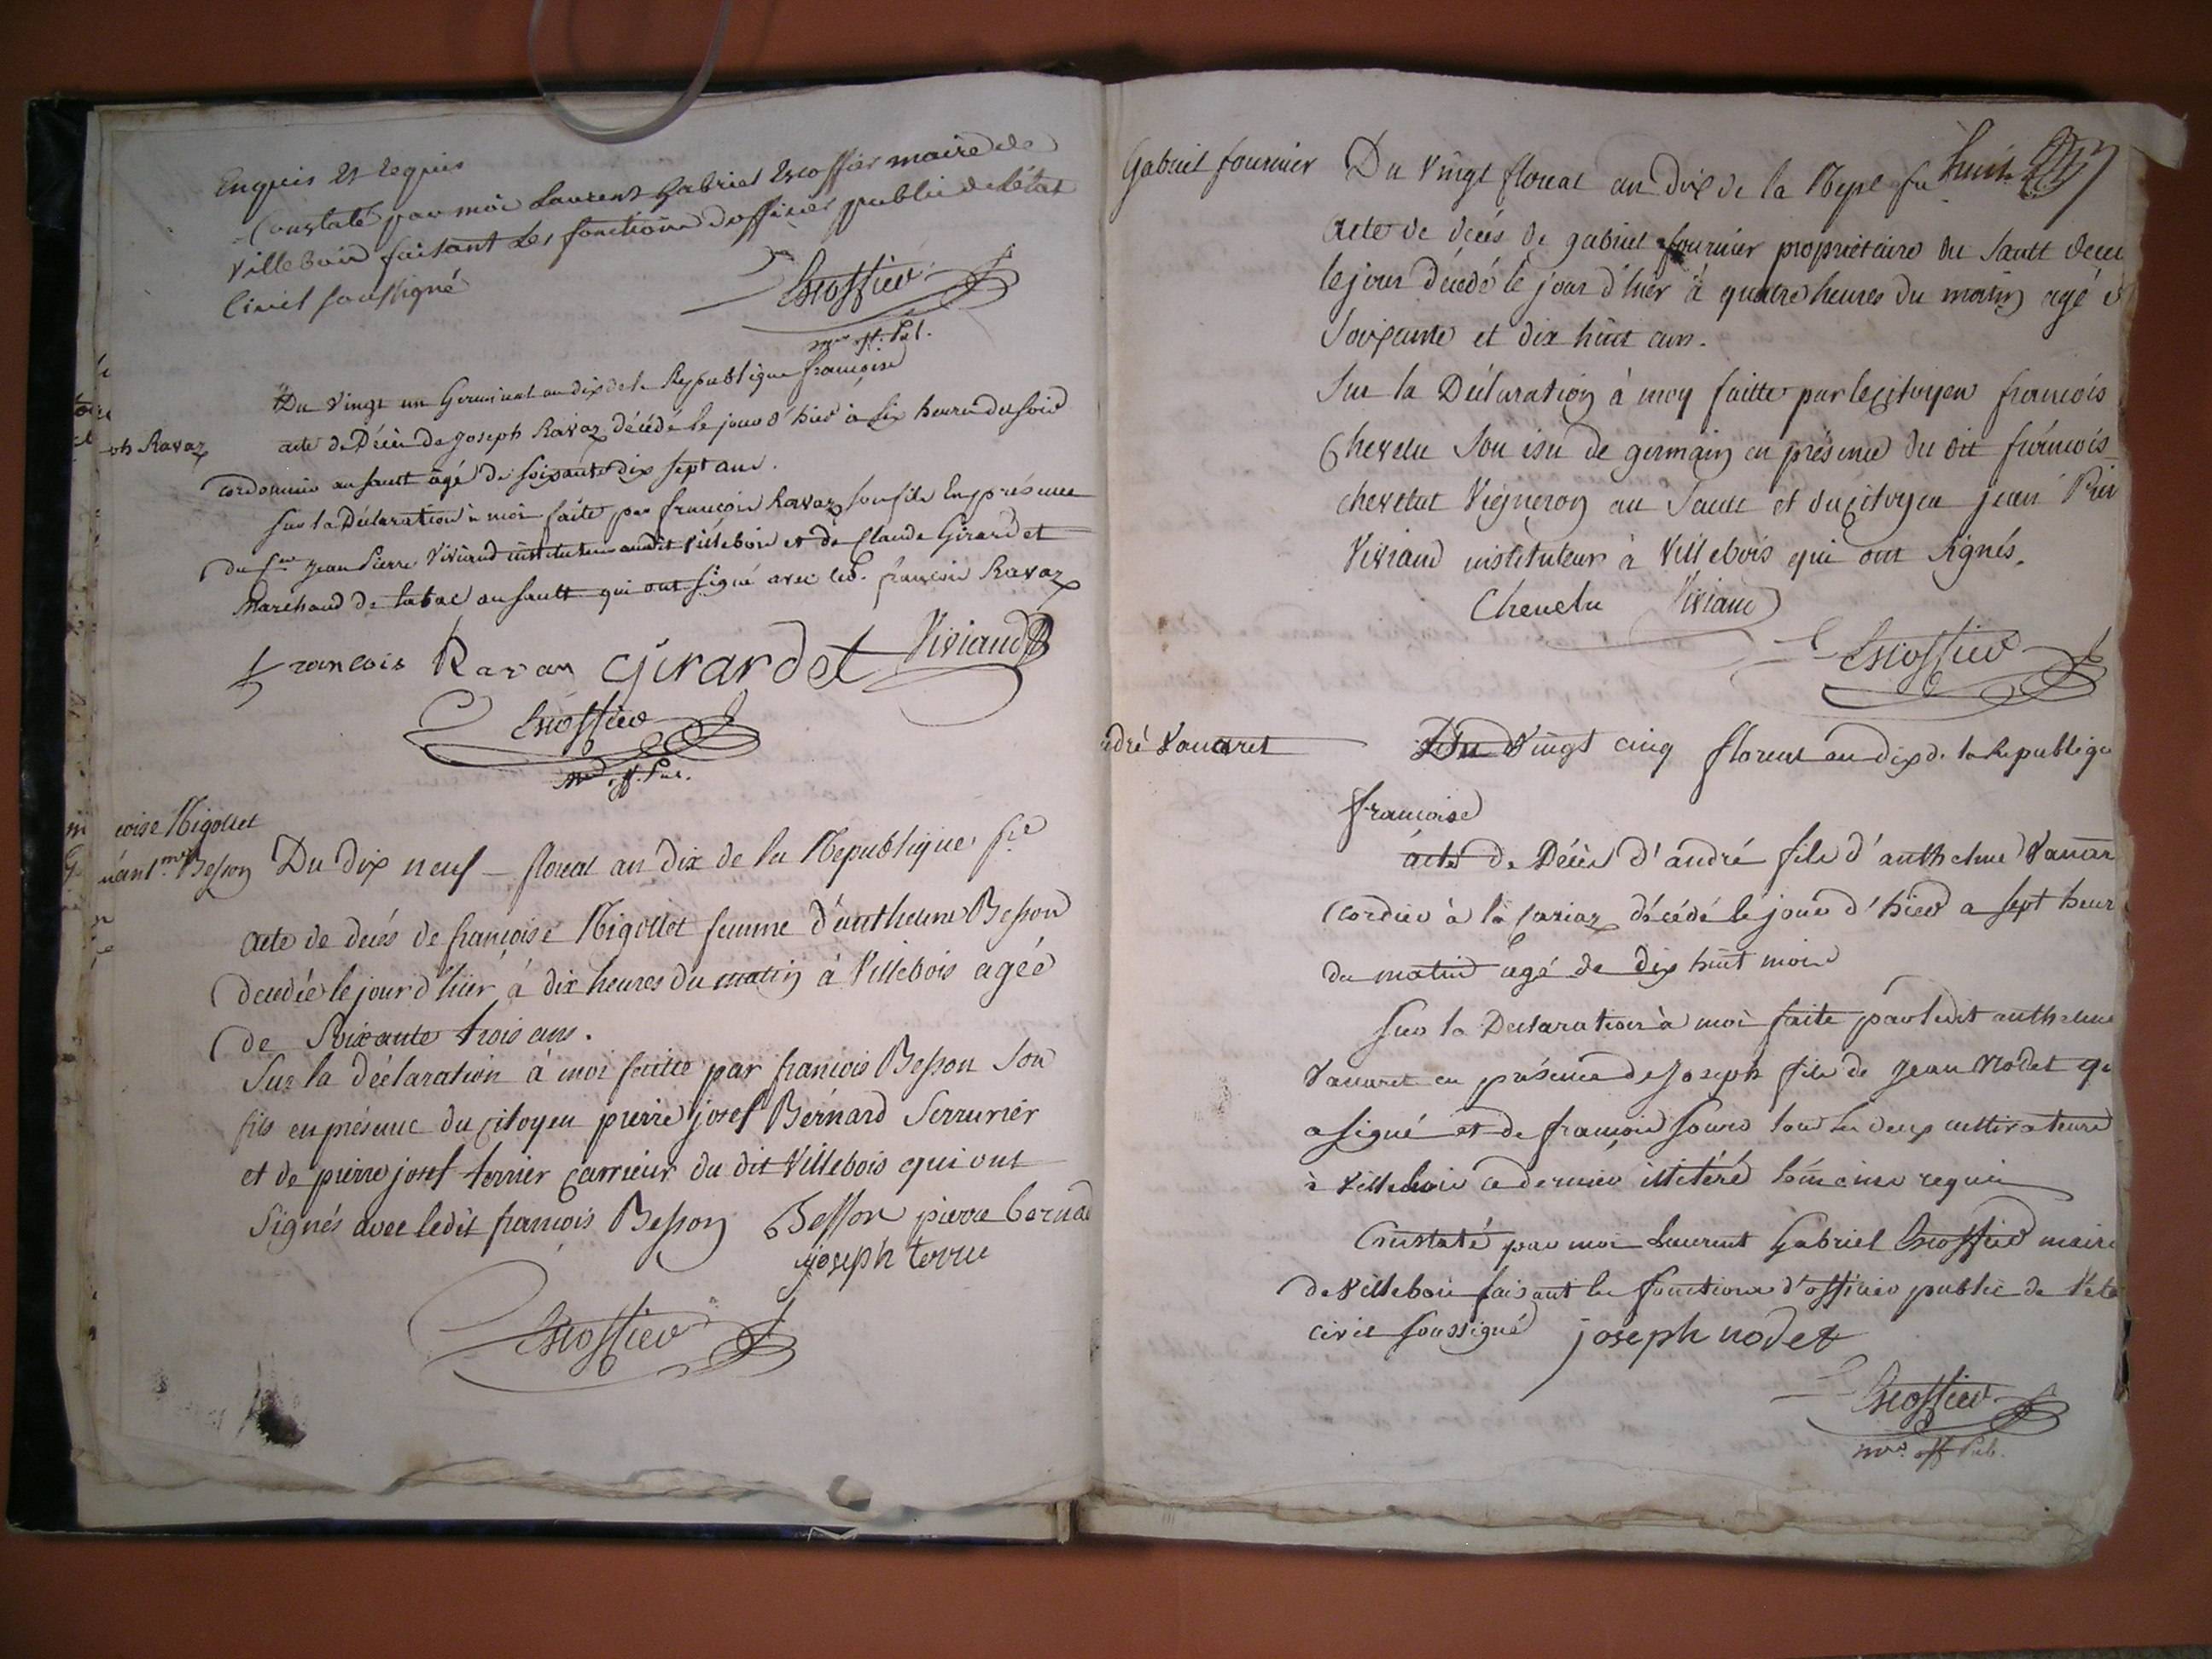 Enquis et requis
Constaté par moi Laurent Gabriel Escoffier maire de
Villebois faisant les fonctions d'officier public de l'état
Civil soussigné
Escoffier
off. Pub.
Du Vingt un Germinal an dix de la Republique françoise
oh Ravaz
acte de Décès de Joseph Ravaz décédé le jour d'hier à six heures du soir
cordonnier au sault âgé de soixante dix sept ans.
sur la Déclaration à moi faite par françois Ravaz son fils En présence
du Jean Pierre Viviand instituteur audit Villebois et de Claude Girardet
Marchand de tabac au sault qui ont signé avec led. françois Ravaz
francois Ravaz Girardet Viviand
Escoffier
off. Pub.
coise Nigollet
Besson
Du dix neuf floreal an dix de la Republique fse
acte de decés de françoise Nigollet femme d'anthelme Besson
decedée le jour d'hier à dix heures du matin à Villebois agée
de Soixante trois ans.
Sur la déclaration à moi faitte par francois Besson Son
fils en présence du citoyen pierre josef Bernard Serrurier
et de pierre josef terrier carrieur du dit Villebois qui ont
Signés avec ledit francois Besson Besson pierre bernad
joseph terrie
Escoffier
Gabriel fournier
huit
Du Vingt floreal an dix de la Repe
Acte de décés de gabriel fournier propriétaire du Sault
le jour décédé le jour d'hier à quatre heures du matin agé
Soixante et dix huit ans.
Sur la Déclaration à moy faitte par le citoyen francois
Chevelu son isu de germain en présence du dit francois
chevelut Vigneron au Sault et du citoyen jean
Viviand instituteur à Villebois qui ont Signés.
Chevelu Viviand
Escoffier
dré Vanaret
Du Vingt cinq floreal an dix de la Republiqu
francoise
acte de Décès d'andré fils d'anthelme Vanar
Cordier à la décédé le jour d'hier a sept heur
du matin agé de dix huit mois
Sur la Declaration à moi faite par ledit anthelme
Vanaret en présence de Joseph fils de Jean Nodet
a signé et de françois tous les deux cultivateurs
à Villebois ce dernier illitéré requis
Constaté par moi Laurent Gabriel Escoffier maire
de Villebois faisant les fonctions d'officier public de l'éta
civil soussigné joseph nodet
Escoffier
off Pub.